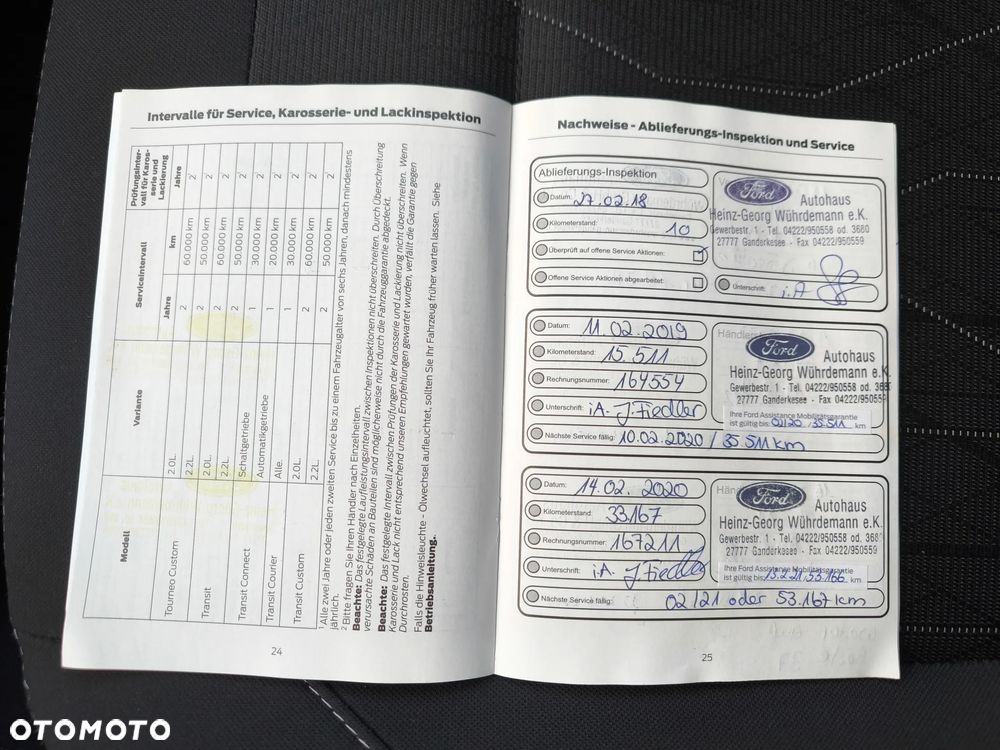 Intervalle für Service, Karosserie- und Lackinspektion
Modell
Variante
Serviceintervall
Prüfungsinter-
vall für Karos-
serie und
Lackierung
Jahre
km
Jahre
Tourneo Custom
2.0L.
2
60.000 km
2²
2.2L.
2
50.000 km
2²
Transit
2.0L.
2
60.000 km
2²
2.2L.
2
50.000 km
2²
Transit Connect
Schaltgetriebe
1
30.000 km
2²
Automatikgetriebe
1
20.000 km
2²
Transit Courier
Alle.
1
30.000 km
2²
Transit Custom
2.0L
2
60.000 km
2²
2.2L.
2
50.000 km
2²
¹ Alle zwei Jahre oder jeden zweiten Service bis zu einem Fahrzeugalter von sechs Jahren, danach mindestens
jährlich.
² Bitte fragen Sie Ihren Händler nach Einzelheiten.
Beachte: Das festgelegte Laufleistungsintervall zwischen Inspektionen nicht überschreiten. Durch Überschreitung
verursachte Schäden an Bauteilen sind möglicherweise nicht durch die Fahrzeuggarantie abgedeckt.
Beachte: Das festgelegte Intervall zwischen Prüfungen der Karosserie und Lackierung nicht überschreiten. Wenn
Karosserie und Lack nicht entsprechend unseren Empfehlungen gewartet wurden, verfällt die Garantie gegen
Durchrosten.
Falls die Hinweisleuchte - Ölwechsel aufleuchtet, sollten Sie Ihr Fahrzeug früher warten lassen. Siehe
Betriebsanleitung.
24
Nachweise - Ablieferungs-Inspektion und Service
Ablieferungs-Inspektion
Datum: 27.02.18
Kilometerstand: 10
Überprüft auf offene Service Aktionen:
Offene Service Aktionen abgearbeitet:
Ford
Autohaus
Heinz-Georg Wührdemann e.K.
Gewerbestr. 1 - Tel. 04222/950558 od. 3680
27777 Ganderkesee - Fax 04222/950559
Unterschrift: i.A
Datum: 11.02.2019
Kilometerstand: 15.511
Rechnungsnummer: 164554
Unterschrift: i.A. J. Fiedler
Nächste Service fällig: 10.02.2020 / 35.511 km
Ford
Autohaus
Heinz-Georg Wührdemann e.K.
Gewerbestr. 1 - Tel. 04222/950558 od. 3680
27777 Ganderkesee - Fax 04222/950559
Ihre Ford Assistance Mobilitätsgarantie
ist gültig bis: 02/20 / 35.511 km
Datum: 14.02.2020
Kilometerstand: 33.167
Rechnungsnummer: 167211
Unterschrift: i.A. J. Fiedler
Nächste Service fällig: 02/21 oder 53.167 km
Ford
Autohaus
Heinz-Georg Wührdemann e.K.
Gewerbestr. 1 - Tel. 04222/950558 od. 3680
27777 Ganderkesee - Fax 04222/950559
Ihre Ford Assistance Mobilitätsgarantie
ist gültig bis: km
25
OTOMOTO